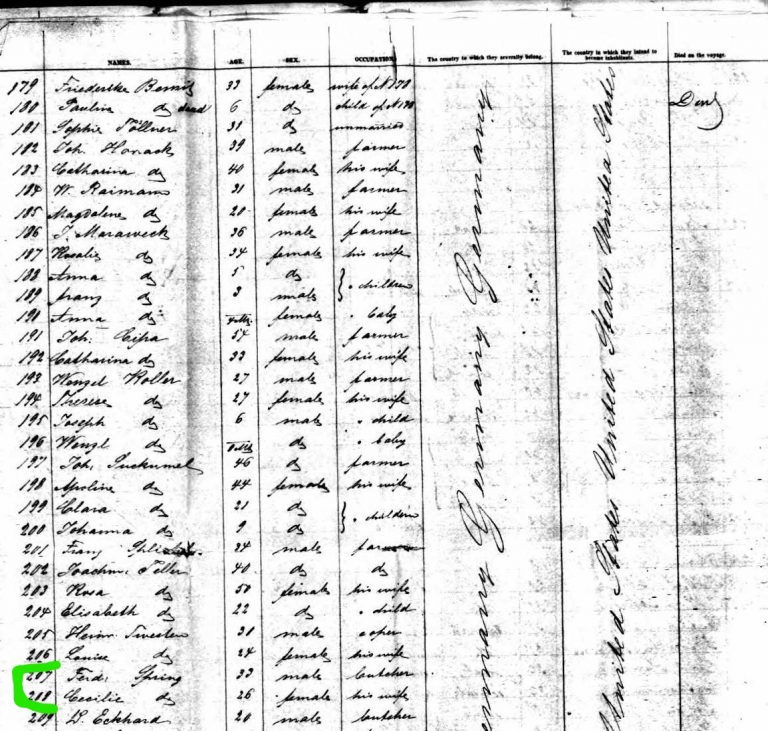 NAMES. AGE. SEX. OCCUPATION The country to which they severally belong. The country to which they intend to become inhabitants. Died on the voyage.
179 Friederike 33 female wife of N 178
180 Pauline do dead 6 do child of N 178 Died
181 Sophie Töllner 31 do unmarried
182 Joh. Horack 39 male farmer
183 Catharina do 40 female his wife
184 W. Raimann 31 male farmer
185 Magdalene do 20 female his wife
186 J. Maraweck 36 male farmer
187 Rosalie do 34 female his wife
188 Anna do 5 do } " children
189 Franz do 3 male
190 Anna do female " baby
191 Joh. Cipa 54 male farmer
192 Catharina do 33 female his wife
193 Wenzel Koller 27 male farmer
194 Therese do 27 female his wife
195 Joseph do 6 male " child
196 Wenzl do do " baby
197 Joh. 46 do farmer
198 Apoline do 44 female his wife
199 Clara do 21 do } " children
200 Johanna do 9 do
201 Franz 24 male farmer
202 Joachim Teller 40 do do
203 Rosa do 50 female his wife
204 Elisabeth do 22 do " child
205 Heinr. 31 male
206 Louise do 24 female his wife
207 Ferd. Spring 33 male butcher
208 Cecilie do 26 female his wife
209 D. Eckhard 20 male butcher
Germany Germany Germany
United States United States United States